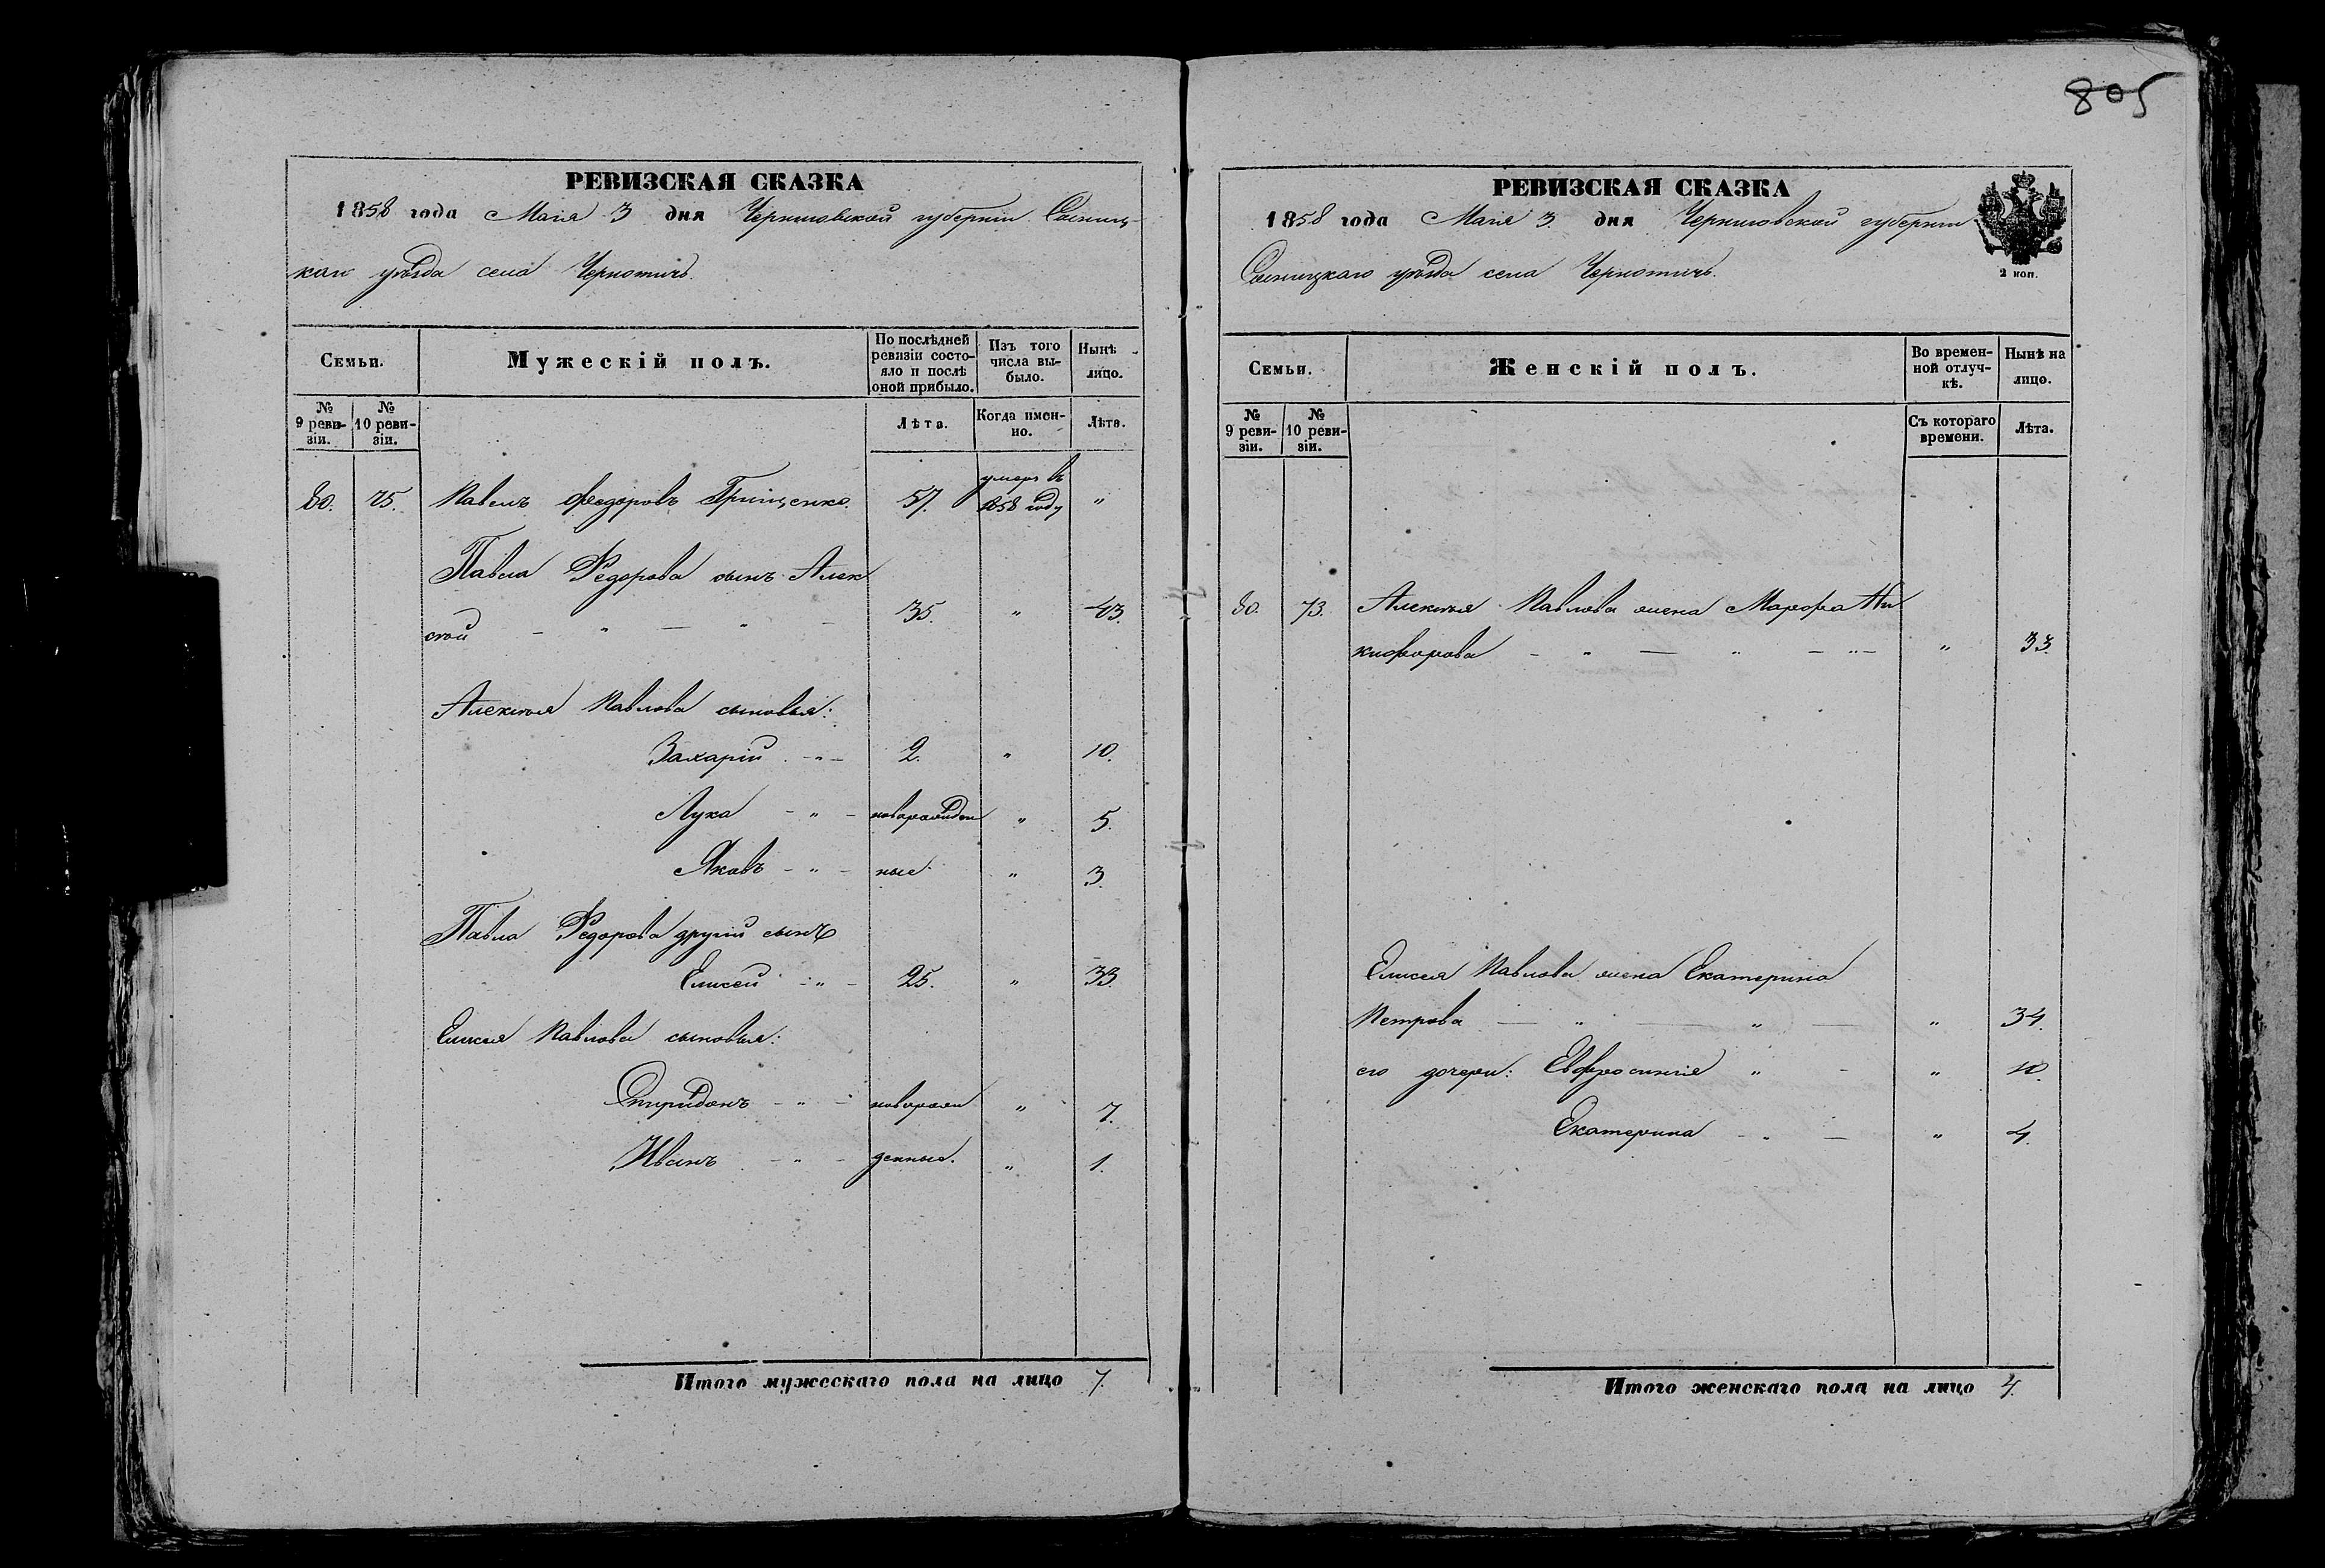 805
РЕВИЗСКАЯ СКАЗКА
1858 года Маія 3 дня Черниговской губерніи Сосниц-
каго уѣзда села Чернотичъ.
Семьи.
Мужескій полъ.
По послѣдней ревизіи состояло и послѣ оной прибыло.
Изъ того числа выбыло.
Нынѣ на лицо.
№ 9 ревизіи.
№ 10 ревизіи.
Лѣта.
Когда именно.
Лѣта.
80. 75. Павелъ Феодоровъ Грищенко. 57. умеръ въ 1858 году "
Павла Федорова сынъ Алек
сѣй - " - " - 35. " 43.
Алексѣя Павлова сыновья:
Захарій - " - 2. " 10.
Лука - " - новорожден " 5.
Яковъ - " - ные " 3.
Павла Федорова другій сынъ
Елисей - " - 25. " 33.
Елисея Павлова сыновья:
Спиридонъ - " - новорож " 7.
Иванъ - " - денные. " 1.
Итого мужескаго пола на лицо 7.
РЕВИЗСКАЯ СКАЗКА
1858 года Маія 3. дня Черниговской губерніи
Сосницкаго уѣзда села Чернотичъ.
2 коп.
Семьи.
Женскій полъ.
Во временной отлучкѣ.
Нынѣ на лицо.
№ 9 ревизіи.
№ 10 ревизіи.
Съ котораго времени.
Лѣта.
80. 73. Алексѣя Павлова жена Марфа Ни
кифорова - " - " - " - " 33.
Елисея Павлова жена Екатерина
Петрова - " - " - " 34.
его дочери: Евфросинія " - " 10.
Екатерина - " - " 4.
Итого женскаго пола на лицо 4.